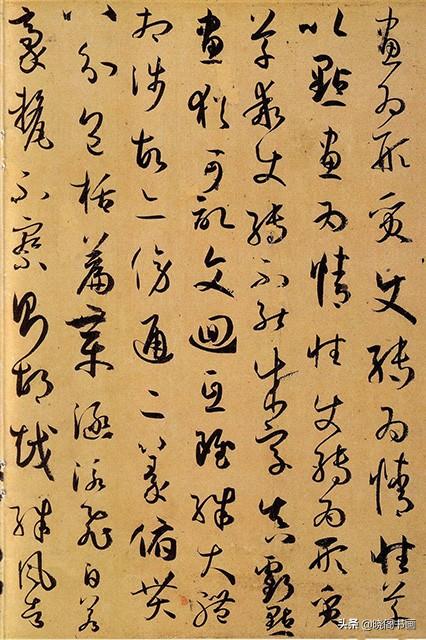 畫為形質使轉為情性草
以點畫為情性使轉為形質
草乖使轉不能成字真虧點
畫猶可記文迴互雖殊大體
相涉故亦傍通二篆俯貫
八分包括篇章涵泳飛白若
豪釐不察則胡越殊風者
头条 @晓阁书画